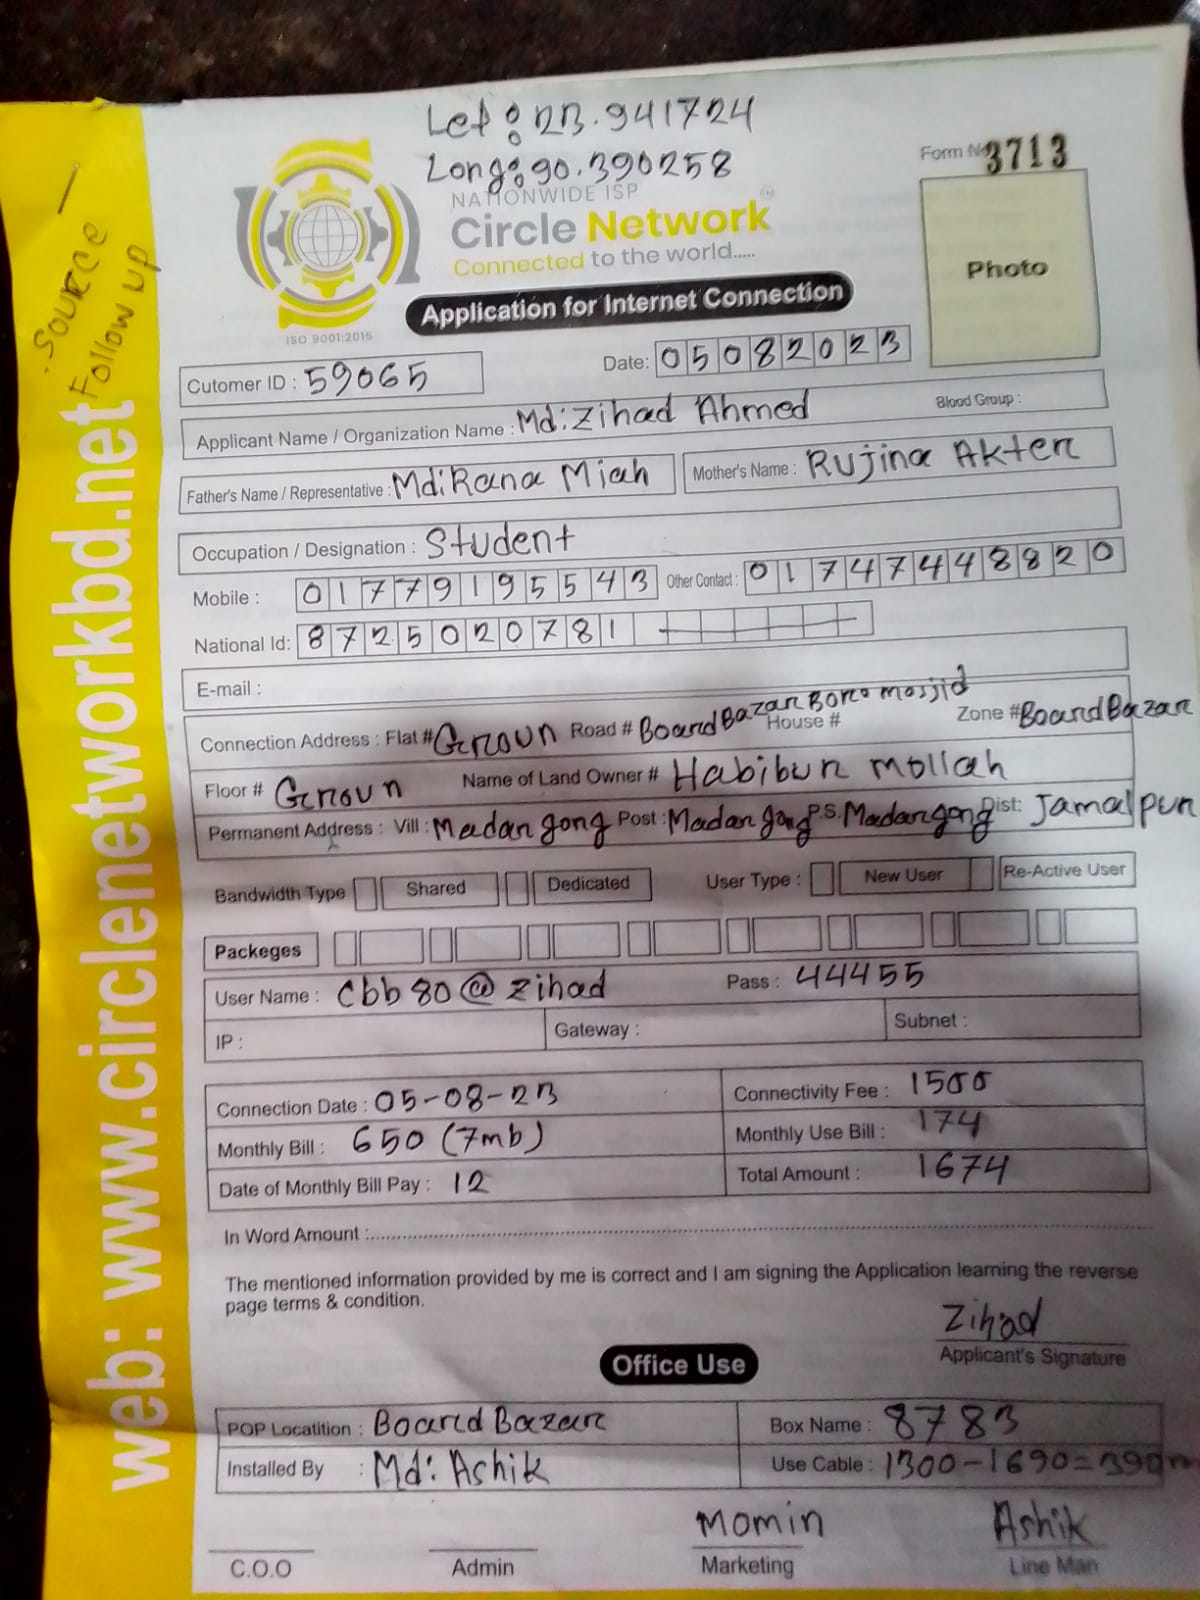 Let: 23.941724
Long: 90.390258
Form No 3713
NATIONWIDE ISP
Circle Network
Connected to the world.....
ISO 9001:2015
Photo
Application for Internet Connection
Source
Follow up
web: www.circlenetworkbd.net
Cutomer ID : 59065
Date: 05082023
Applicant Name / Organization Name : Md: Zihad Ahmed Blood Group :
Father's Name / Representative : Md: Rana Miah Mother's Name : Rujina Akter
Occupation / Designation : Student
Mobile : 01779195543 Other Contact : 01747448820
National Id: 8725020781
E-mail :
Connection Address : Flat # Groun Road # Board Bazar Boro mosjid House # Zone # Board Bazar
Floor # Groun Name of Land Owner # Habibur mollah
Permanent Address : Vill : Madan gong Post : Madan gong P.S. Madan gong Dist: Jamalpur
Bandwidth Type Shared Dedicated User Type : New User Re-Active User
Packeges
User Name : Cbb80@zihad Pass : 44455
IP : Gateway : Subnet :
Connection Date : 05-08-23 Connectivity Fee : 1500
Monthly Bill : 650 (7mb) Monthly Use Bill : 174
Date of Monthly Bill Pay : 12 Total Amount : 1674
In Word Amount :
The mentioned information provided by me is correct and I am signing the Application learning the reverse
page terms & condition.
Zihad
Applicant's Signature
Office Use
POP Locatition : Board Bazar Box Name : 8783
Installed By : Md: Ashik Use Cable : 1300-1690=390m
Momin Ashik
C.O.O Admin Marketing Line Man